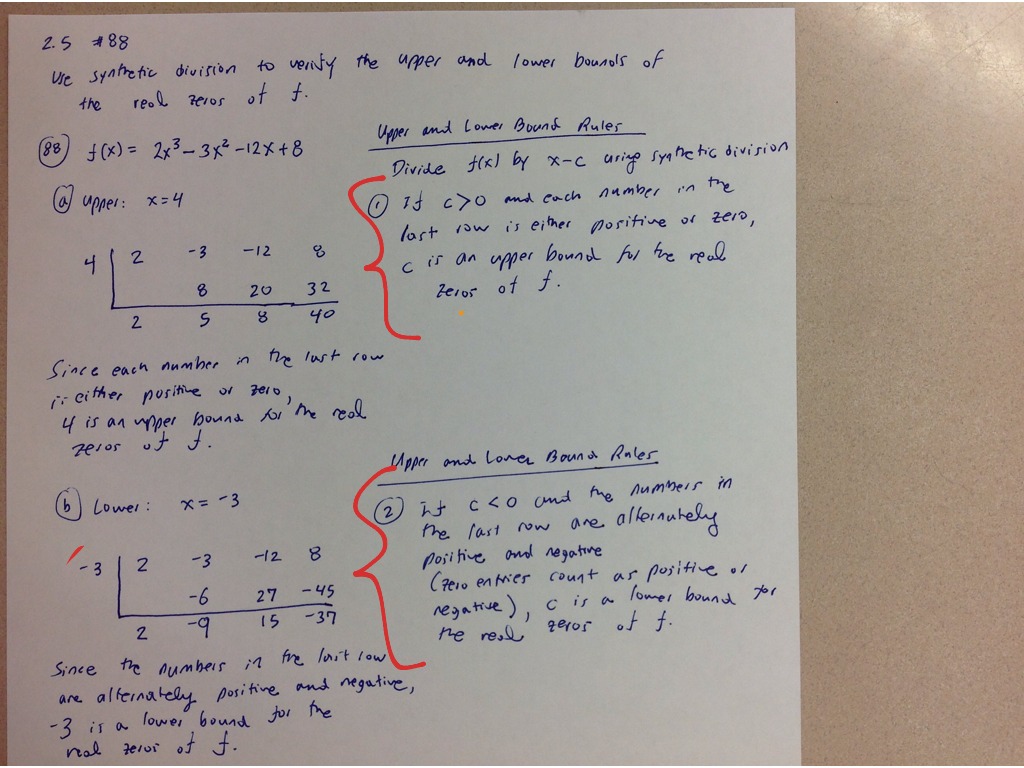 2.5 #88
Use synthetic division to verify the upper and lower bounds of
the real zeros of f.
88 f(x) = 2x³-3x²-12x+8
a Upper: x=4
4 2 -3 -12 8
8 20 32
2 5 8 40
Since each number in the last row
is either positive or zero,
4 is an upper bound for the real
zeros of f.
Upper and Lower Bound Rules
Divide f(x) by x-c using synthetic division
1 If c>0 and each number in the
last row is either positive or zero,
c is an upper bound for the real
zeros of f.
b Lower: x=-3
-3 2 -3 -12 8
-6 27 -45
2 -9 15 -37
Since the numbers in the last row
are alternately positive and negative,
-3 is a lower bound for the
real zeros of f.
Upper and Lower Bound Rules
2 If c<0 and the numbers in
the last row are alternately
positive and negative
(zero entries count as positive or
negative), c is a lower bound for
the real zeros of f.